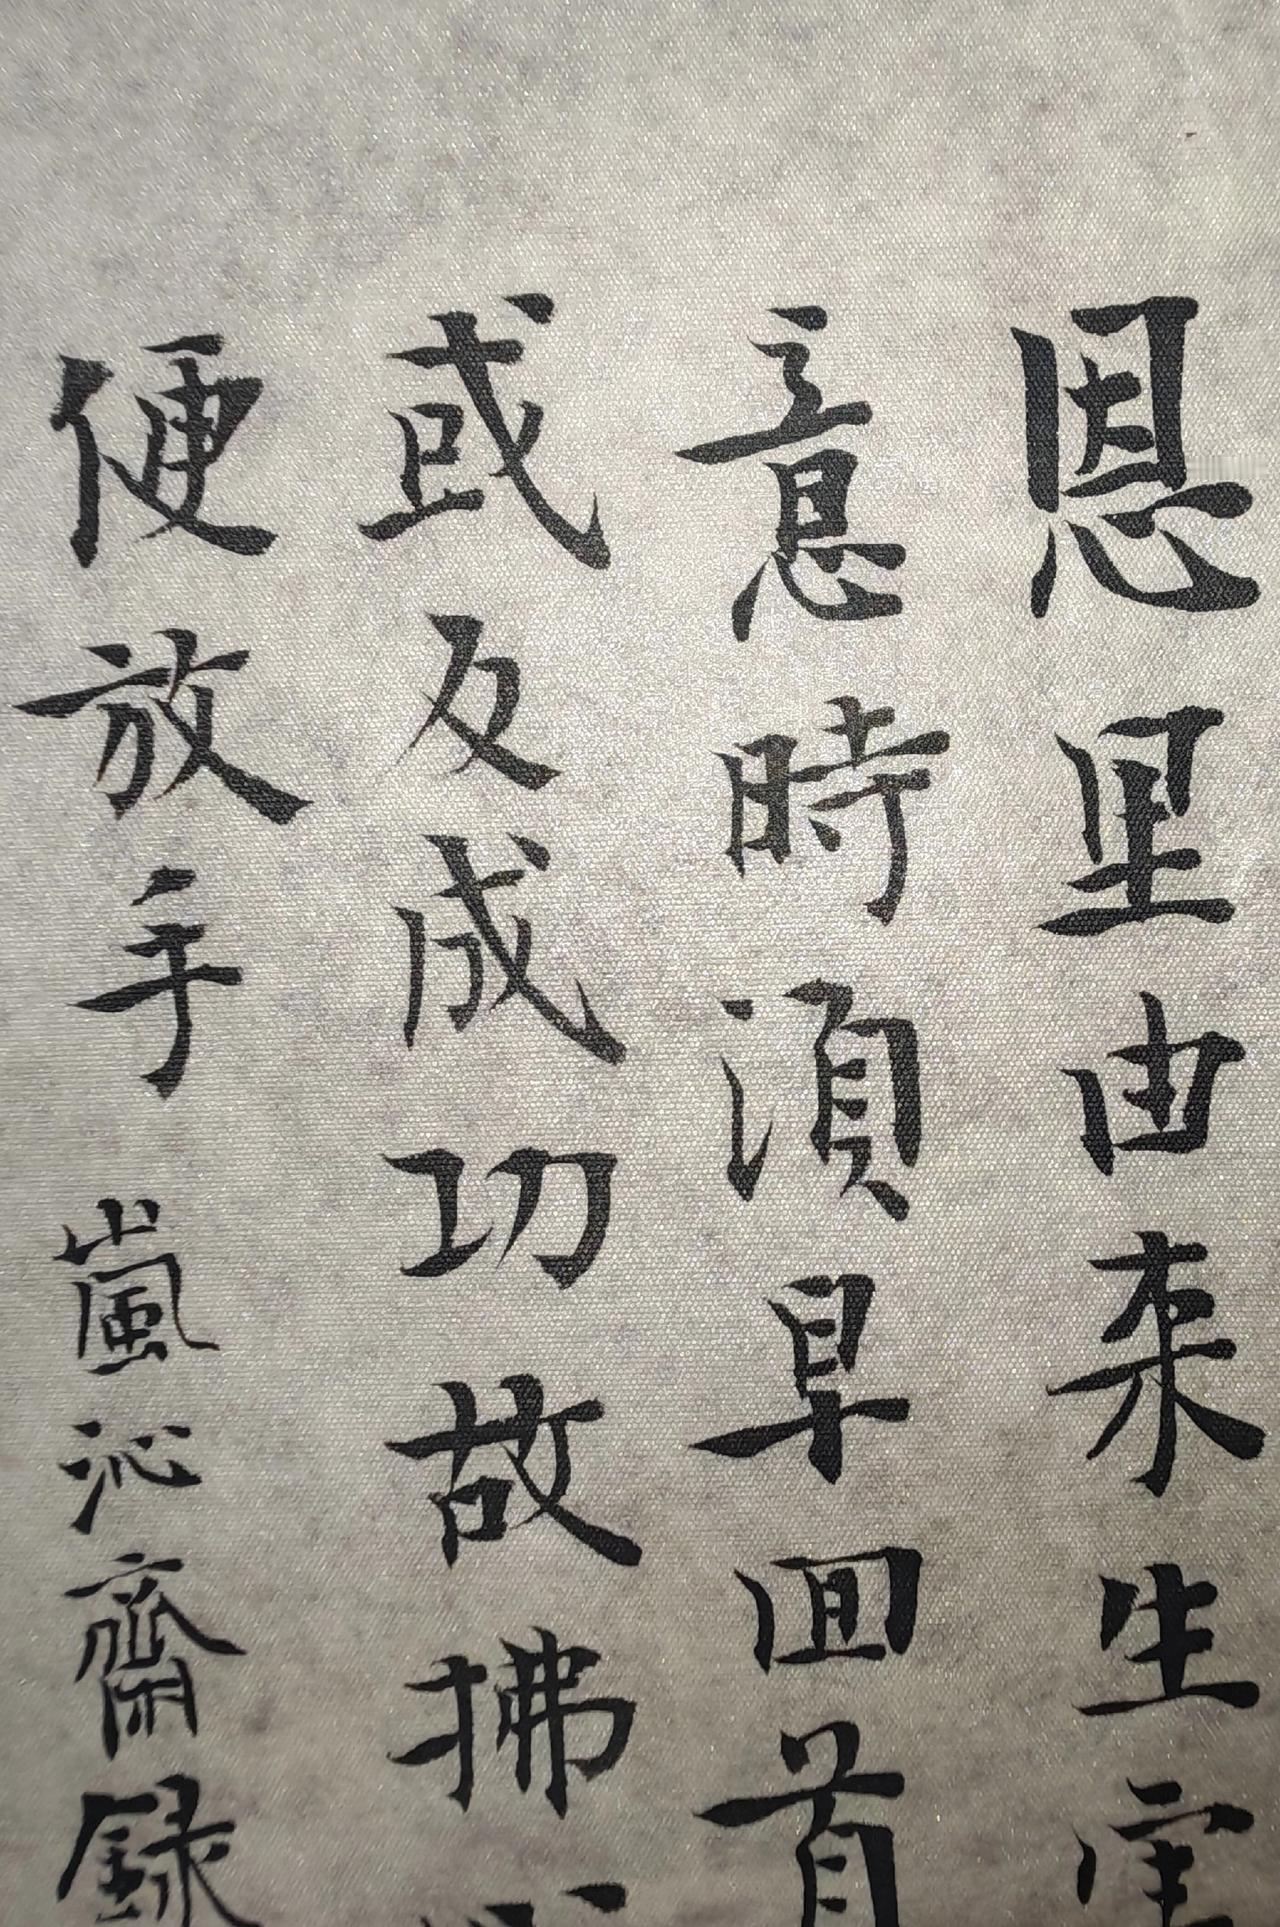 恩里由来生
意時湏早囬首
或反成功故拂
便放手 嵐沁齋録